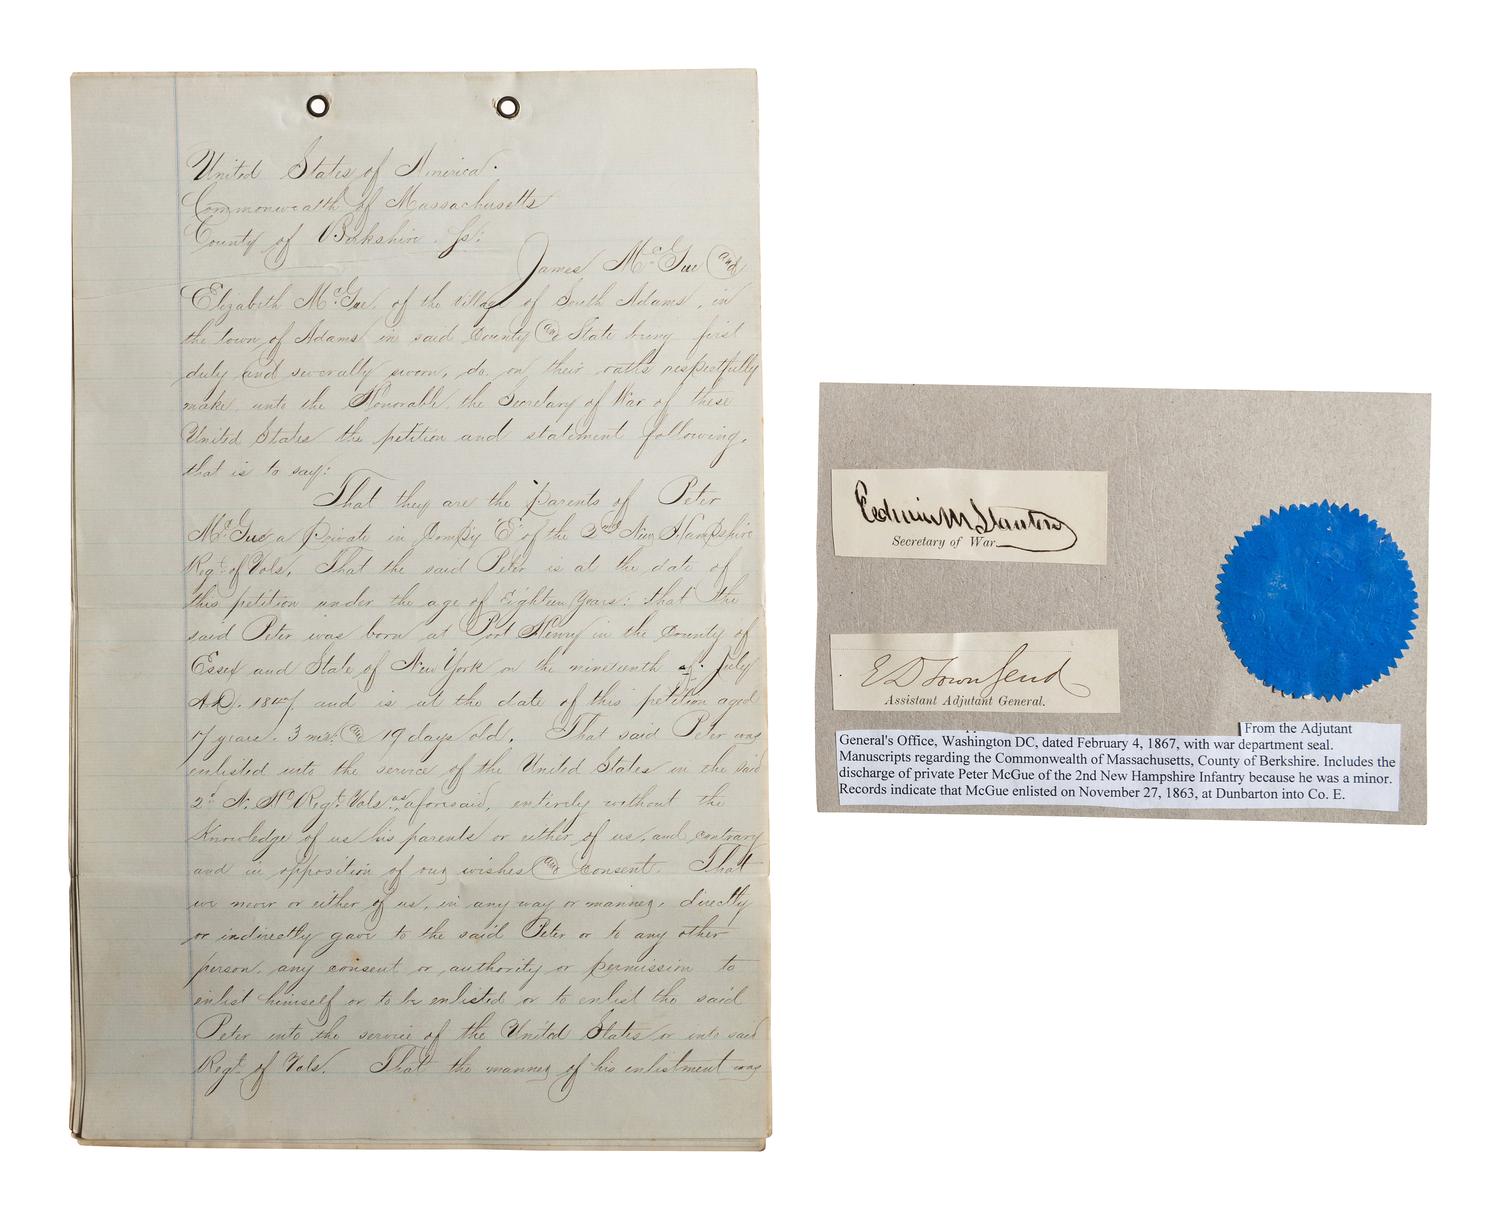 United States of America.
Commonwealth of Massachusetts
County of Berkshire. Ss:
James McGue and
Elizabeth McGue, of the village of South Adams, in
the town of Adams in said County and State being first
duly and severally sworn, do on their oaths respectfully
make unto the Honorable, the Secretary of War of these
United States the petition and statement following,
that is to say:
That they are the parents of Peter
McGue a Private in Comp'y "E" of the 2nd New Hampshire
Regt. of Vols. That the said Peter is at the date of
this petition under the age of Eighteen Years: that the
said Peter was born at Port Henry in the County of
Essex and State of New York on the nineteenth of July
A.D. 1847 and is at the date of this petition aged
17 years. 3 mos. and 19 days old. That said Peter was
enlisted into the service of the United States in the said
2d N. H. Regt. Vols. as aforesaid, entirely without the
Knowledge of us his parents or either of us, and contrary
and in opposition of our wishes and consent. That
we never or either of us, in any way or manner, directly
or indirectly gave to the said Peter or to any other
person, any consent or authority or permission to
enlist himself or to be enlisted or to enlist the said
Peter into the service of the United States or into said
Regt. of Vols. That the manner of his enlistment was
Edwin M Stanton
Secretary of War.
E D Townsend
Assistant Adjutant General.
From the Adjutant
General's Office, Washington DC, dated February 4, 1867, with war department seal.
Manuscripts regarding the Commonwealth of Massachusetts, County of Berkshire. Includes the
discharge of private Peter McGue of the 2nd New Hampshire Infantry because he was a minor.
Records indicate that McGue enlisted on November 27, 1863, at Dunbarton into Co. E.